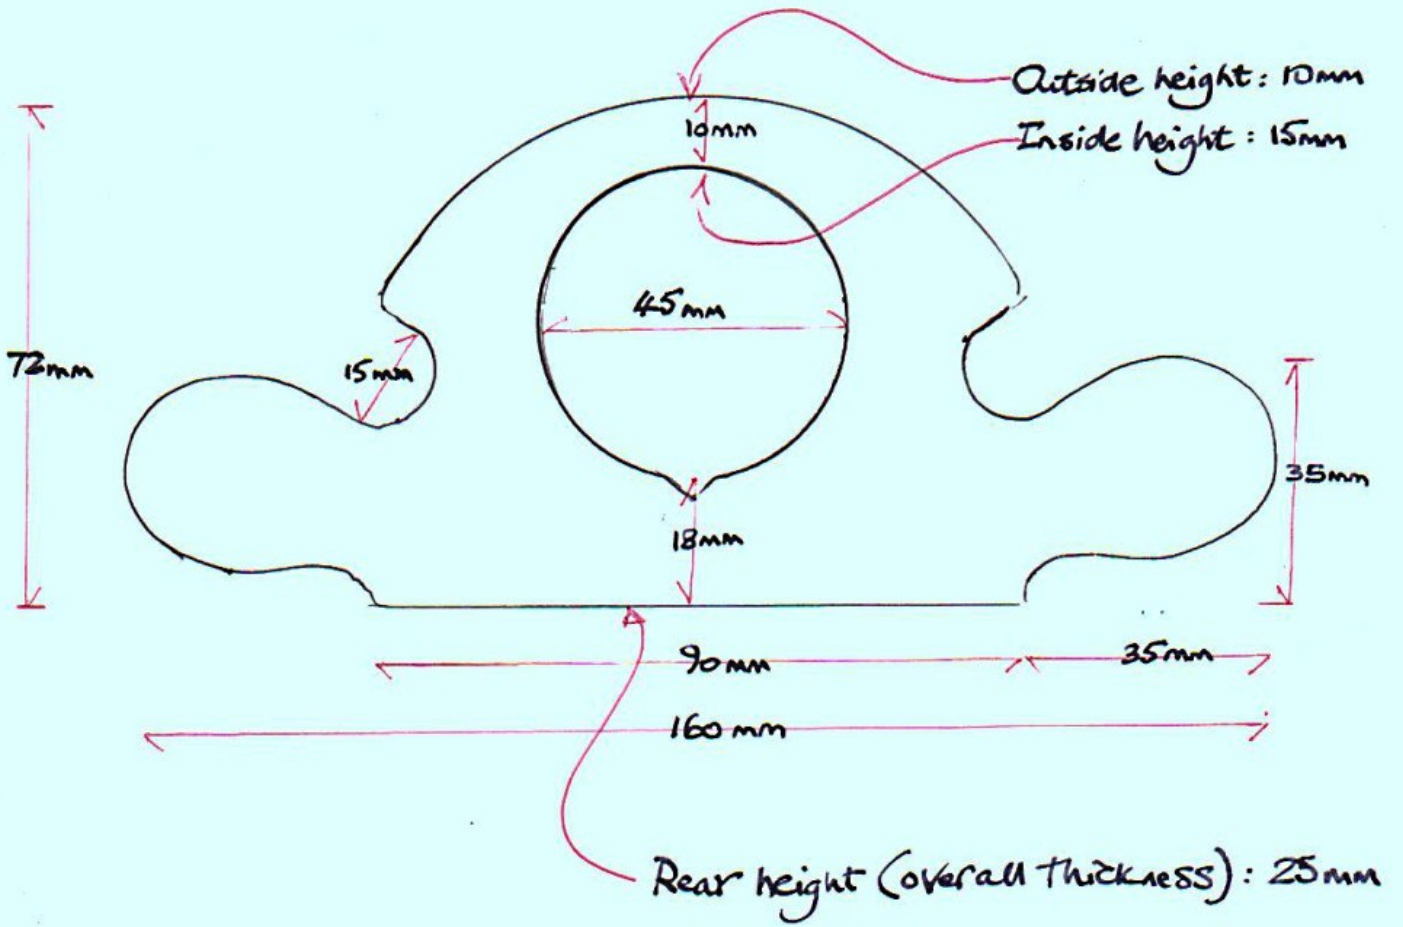 Outside height: 10mm
10mm
Inside height: 15mm
45mm
72mm
15mm
35mm
18mm
90mm
35mm
160mm
Rear height (overall thickness): 25mm